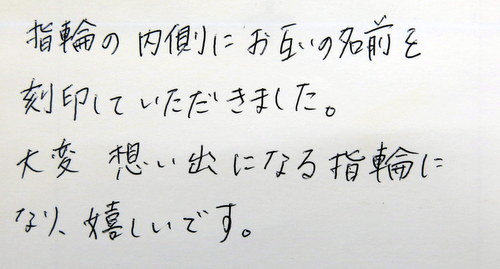 指輪の内側にお互いの名前を
刻印していただきました。
大変 想い出になる指輪に
なり、嬉しいです。